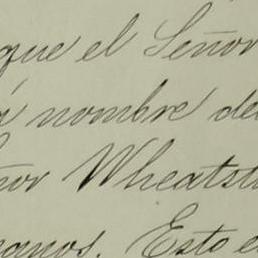 que el Señor
nombre de
Wheatst
Esto e